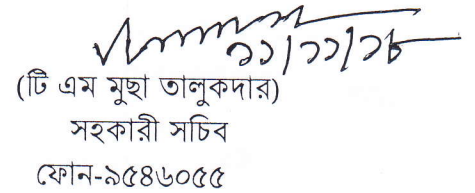 ১১/১১/১৮
(টি এম মুছা তালুকদার)
সহকারী সচিব
ফোন-৯৫৪৬০৫৫